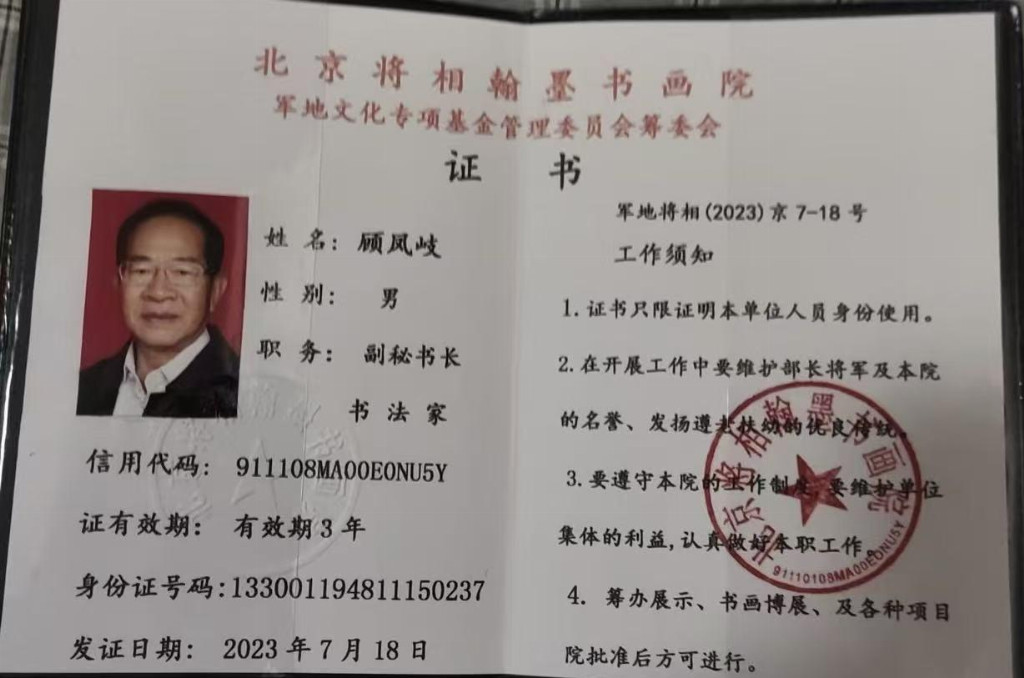 北京将相翰墨书画院
军地文化专项基金管理委员会筹委会
证 书
姓 名: 顾凤岐
性 别: 男
职 务: 副秘书长
书 法 家
信用代码: 911108MA00E0NU5Y
证有效期: 有效期3年
身份证号码:133001194811150237
发证日期: 2023年7月18日
军地将相(2023)京7-18号
工作须知
1.证书只限证明本单位人员身份使用。
2.在开展工作中要维护部长将军及本院
的名誉、发扬遵老扶幼的优良传统。
3.要遵守本院的工作制度,要维护单位
集体的利益,认真做好本职工作。
4. 筹办展示、书画博展、及各种项目
院批准后方可进行。
北京将相翰墨书画院
91110108MA00E0NU5Y